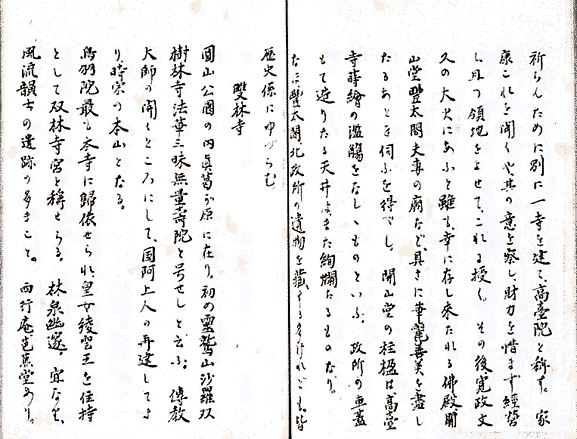 祈らんために別に一寺を建て高臺院と称す。家
康これを聞くや其の意を察し財力を惜まず經營
し且つ領地をよせてこれに授く。その後寛政文
久の大火にあふと雖も幸に存し来たれる佛殿開
山堂豐太閤夫妻の廟など、具さに華麗善美を盡し
たるあとを伺ふを得べし。開山堂の柱楹は高臺
寺蒔繪の濫觴をなしゝものといふ。政所の車蓋
もて造りたる天井はまた絢爛たるものなり。
なほ豐太閤、北政所の遺物を藏するもの多けれども皆
歴史係にゆづらむ
雙林寺
圓山公園の内眞葛が原に在り。初め霊鷲山沙羅双
樹林寺法華三昧無量壽院と号せしと云ふ。傳教
大師の開くところにして、国阿上人の再建してよ
り時宗の本山となる。
鳥羽院最も本寺に歸依せられ皇女綾雲王を住持
として双林寺宮と稱せらる。林泉幽邃。宜なるも
風流韻士の遺跡の多きこと。西行庵芭蕉堂あり。